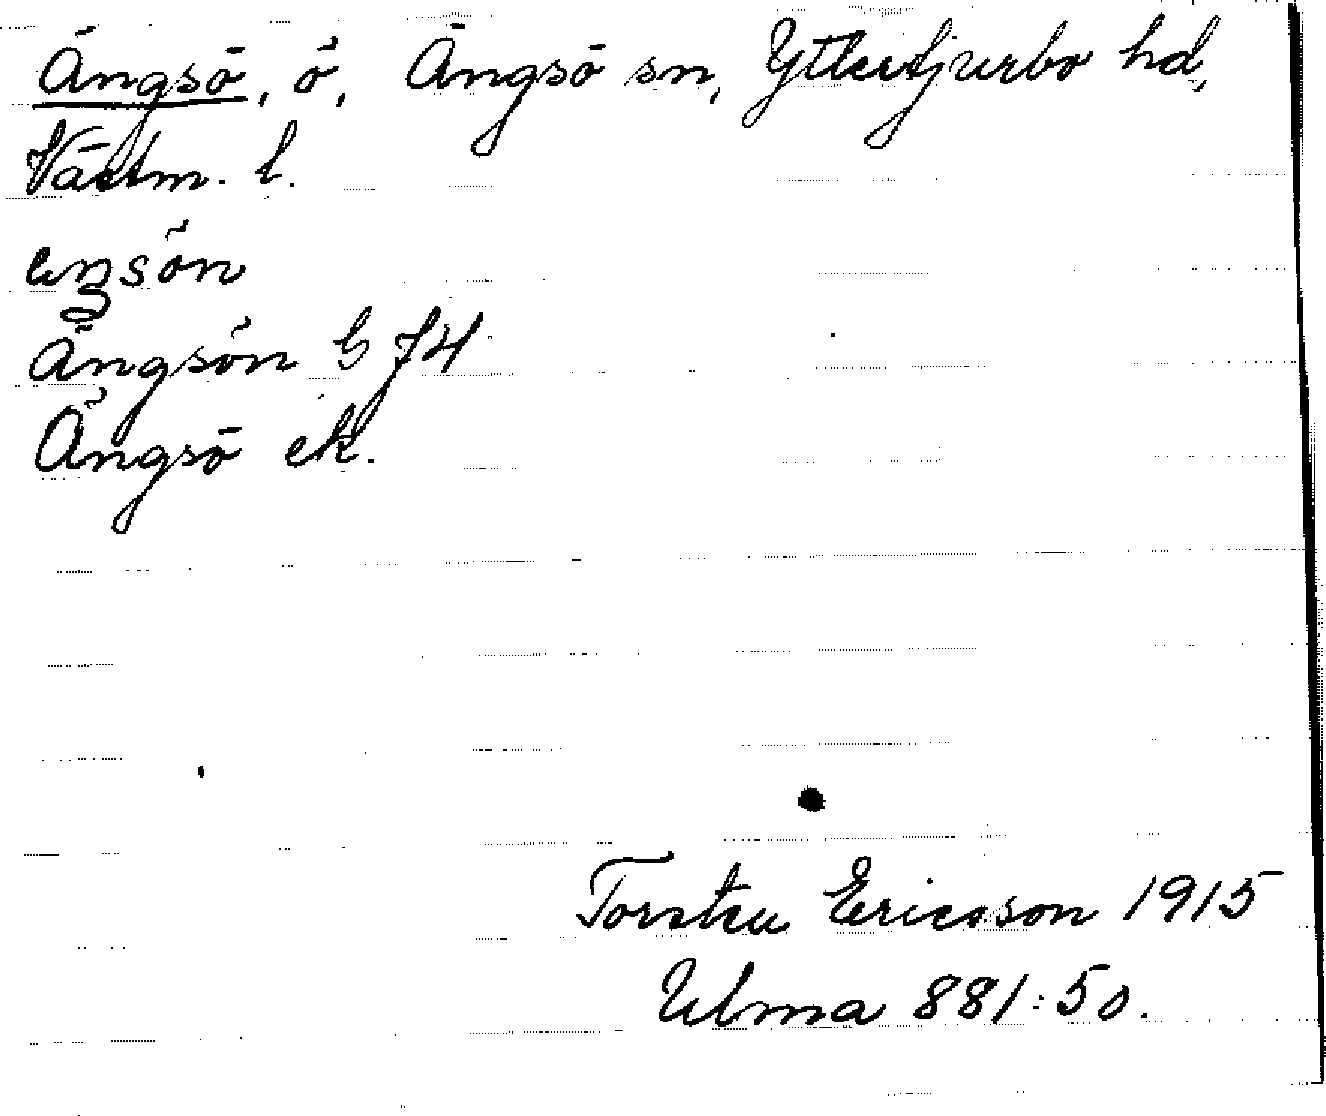 Ängsö, ö, Ängsö sn, Yttertjurbo hd,
Västm. l.
eŋsön
Ängsön G 74
Ängsö ek.
Torsten Ericsson 1915
Ulma 881:50.